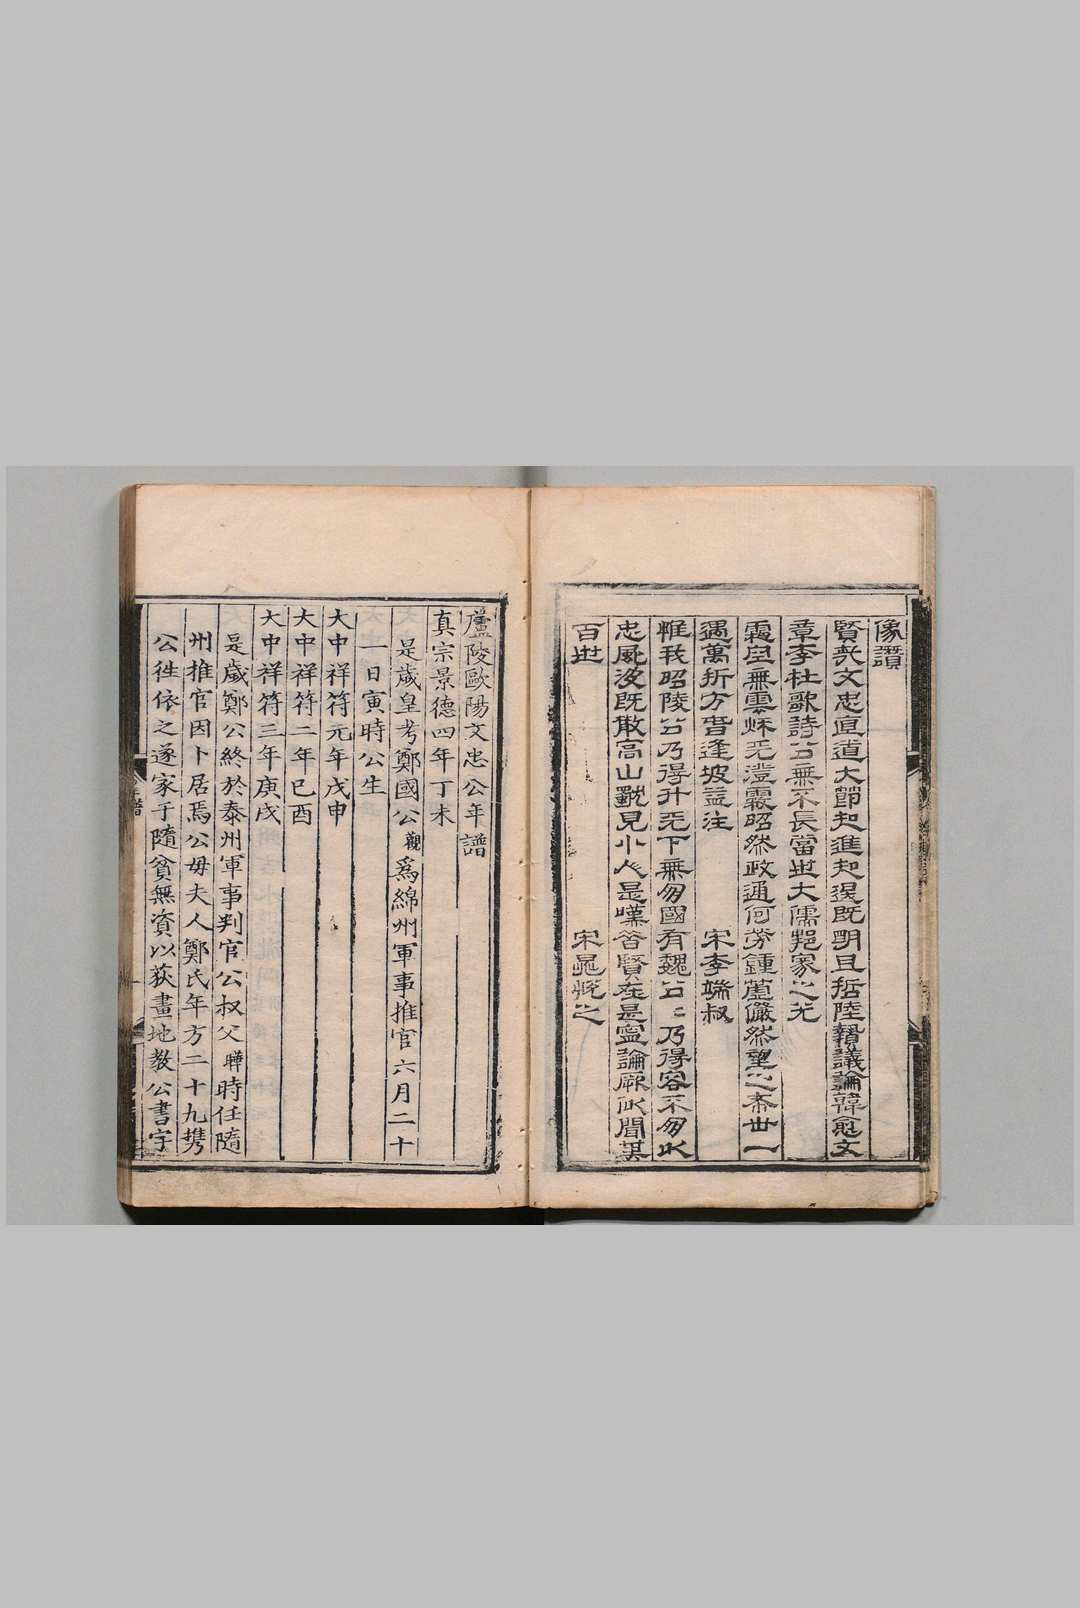 像讚
賢哉文忠直道大節知進知退既明且哲陸贄議論韓愈文
章李杜歌詩公無不長當世大儒邦家之光
空無雲秋天澄霽昭然政通何儼然望之一
遇萬折方逢坡益注 宋李端叔
惟我昭陵公乃得升天下無國有魏公公乃得容不
忠風沒既高山見小人是嘆咨賢在是寧論厥聞其
百世 宋晁說之
廬陵歐陽文忠公年譜
真宗景德四年丁未
是歲皇考鄭國公觀爲綿州軍事推官六月二十
一日寅時公生
大中祥符元年戊申
大中祥符二年己酉
大中祥符三年庚戌
是歲鄭公終於泰州軍事判官公叔父曄時任隨
州推官因卜居焉公母夫人鄭氏年方二十九携
公徃依之遂家于隨貧無資以荻畫地教公書字